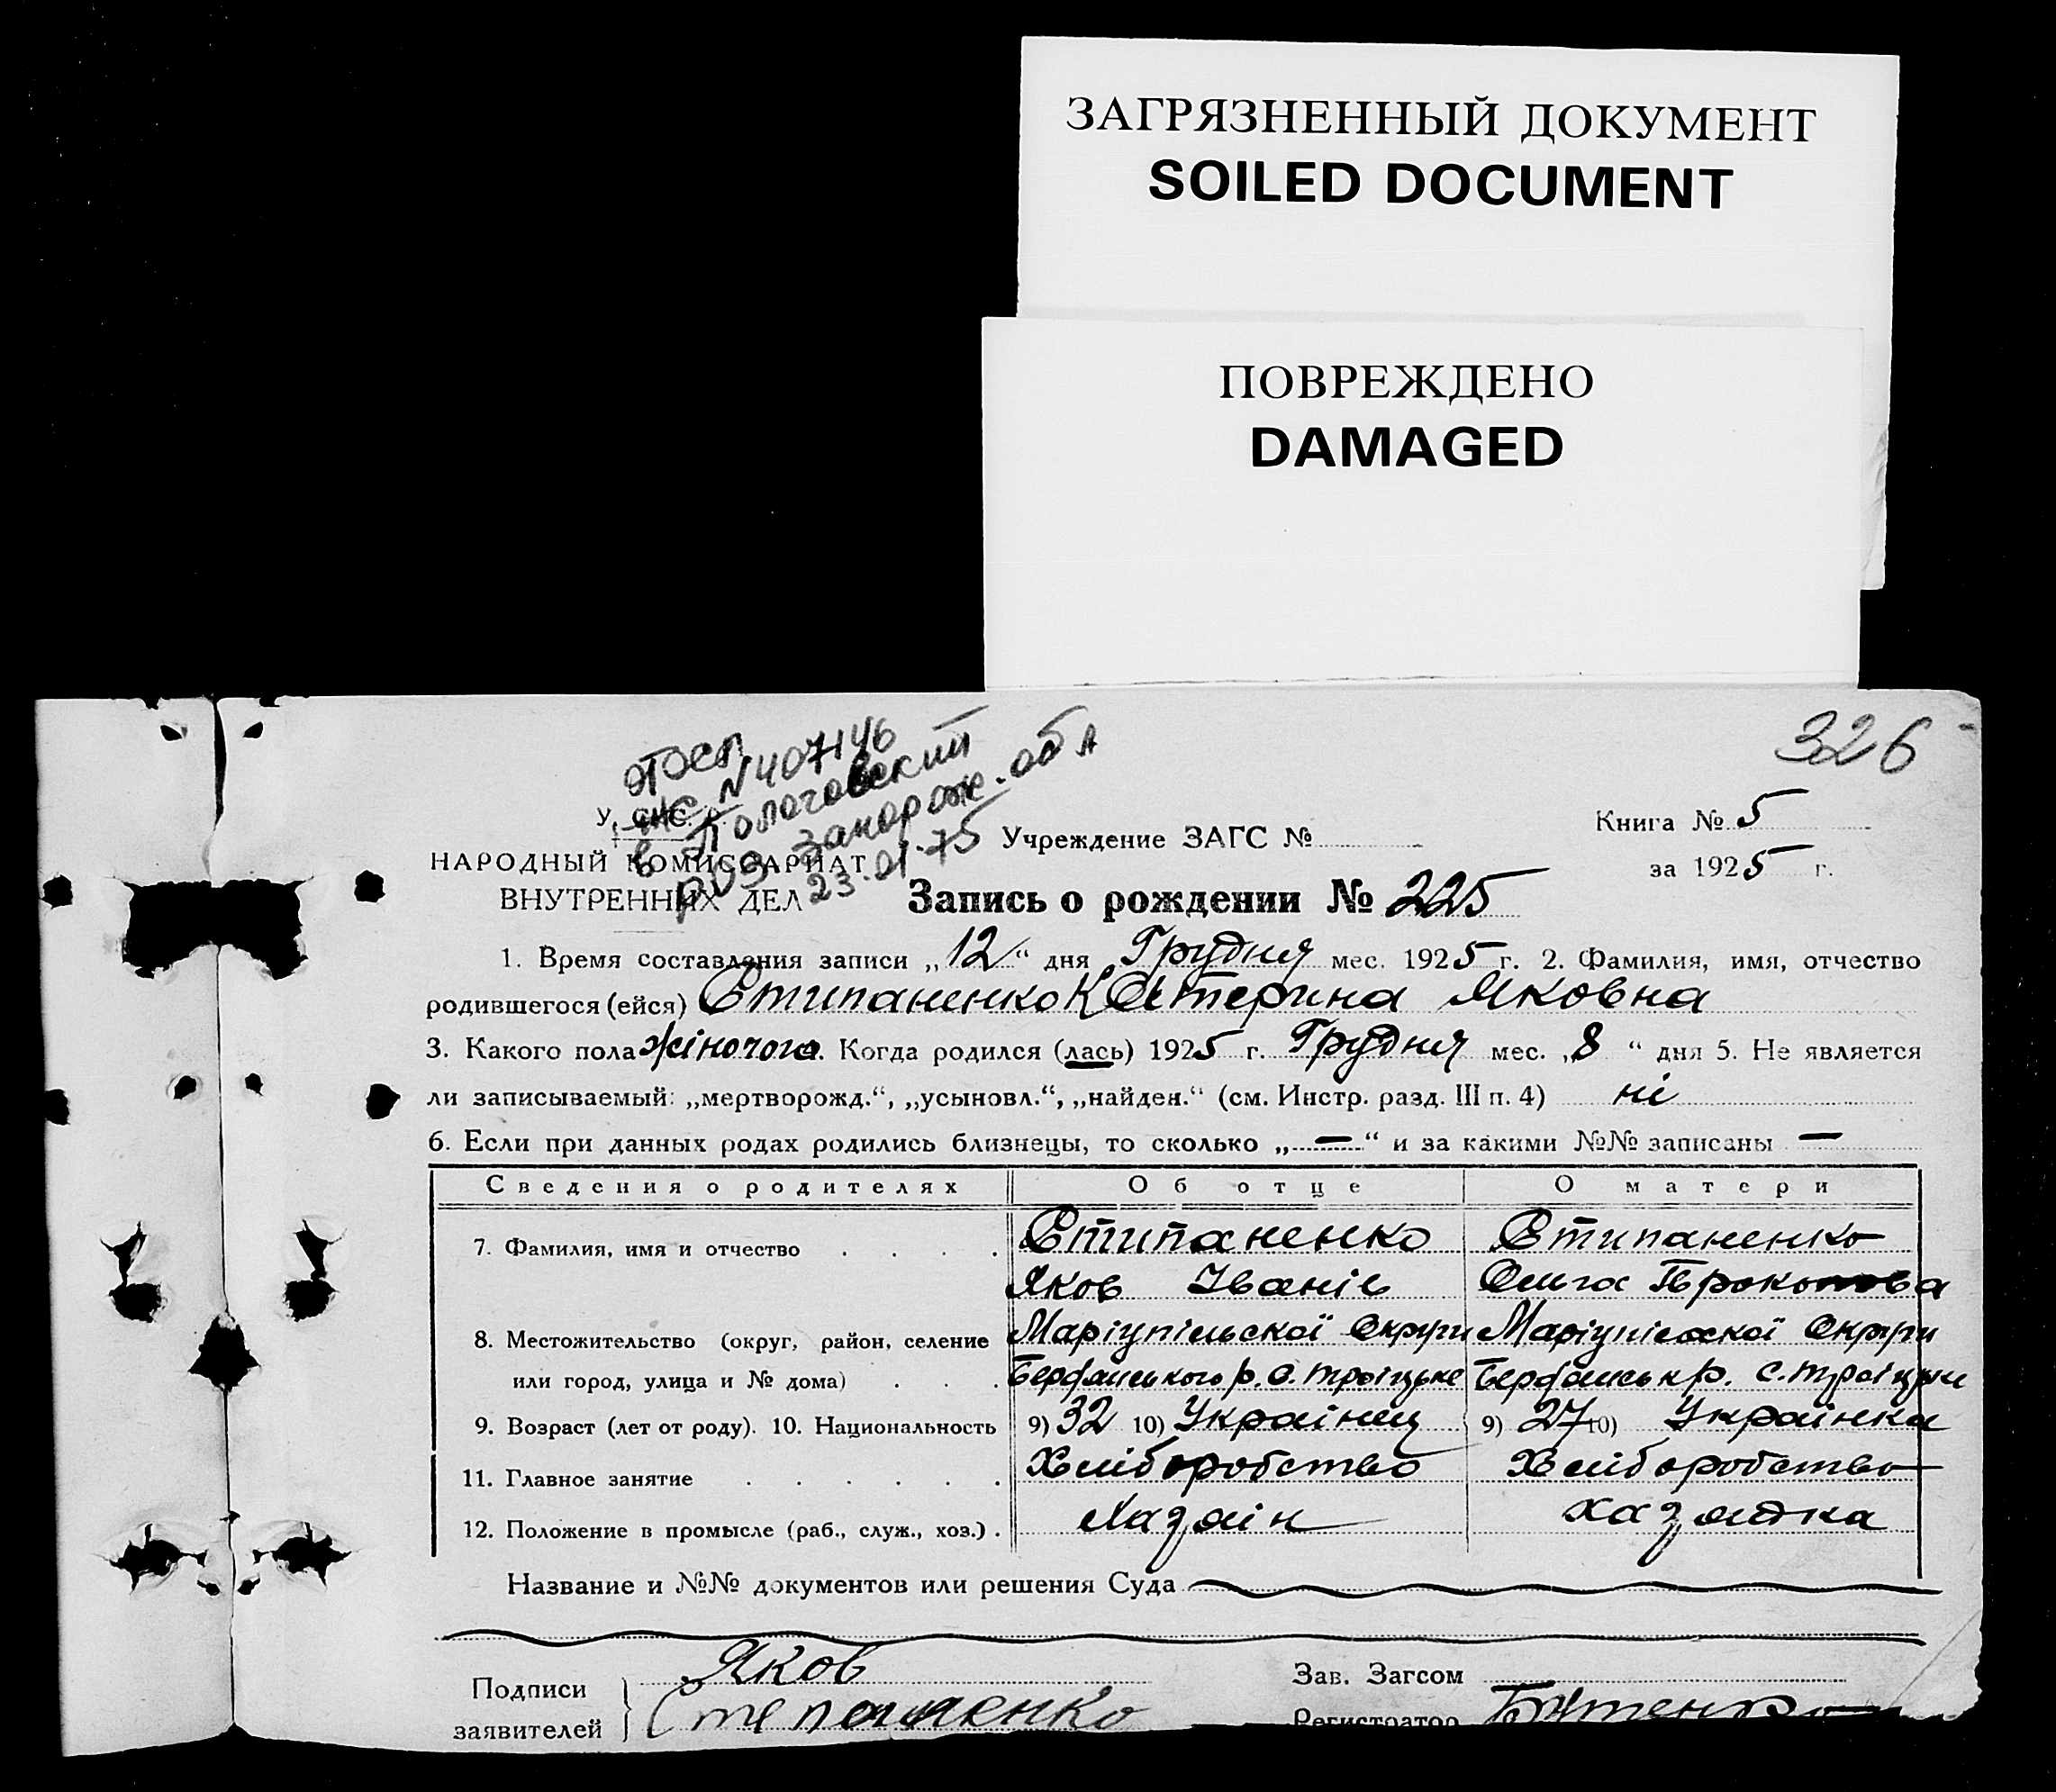 ЗАГРЯЗНЕННЫЙ ДОКУМЕНТ
SOILED DOCUMENT
ПОВРЕЖДЕНО
DAMAGED
326
N 407146
в Пологовский
РОЗ Запорож. обл
23.01.75
У. С. С. Р.
НАРОДНЫЙ КОМИССАРИАТ
ВНУТРЕННИХ ДЕЛ
Учреждение ЗАГС №
Книга № 5
за 1925 г.
Запись о рождении № 225
1. Время составления записи „12“ дня Грудня мес. 1925 г. 2. Фамилия, имя, отчество
родившегося (ейся) Стипаненко Катерина Яковна
3. Какого пола жіночого. Когда родился (лась) 1925 г. Грудня мес. „8“ дня 5. Не является
ли записываемый: „мертворожд.“, „усыновл.“, „найден.“ (см. Инстр. разд. III п. 4) ні
6. Если при данных родах родились близнецы, то сколько „—“ и за какими №№ записаны —
Сведения о родителях Об отце О матери
7. Фамилия, имя и отчество . . . . Стипаненко Стипаненко
Яков Іванів Ольга Прокопова
8. Местожительство (округ, район, селение Маріупільскої Округи Маріупілскої Округи
или город, улица и № дома) . . . Бердянського р. с. Троіцьке Бердянськ р. с. Троіцьке
9. Возраст (лет от роду). 10. Национальность 9) 32 10) Українец 9) 27 10) Українка
11. Главное занятие . . . . . . Хліборобство Хліборобство
12. Положение в промысле (раб., служ., хоз.) . Хазаін хазяйка
Название и №№ документов или решения Суда
Подписи
заявителей
Яков
Степаненко
Зав. Загсом
Регистратор Бутенко